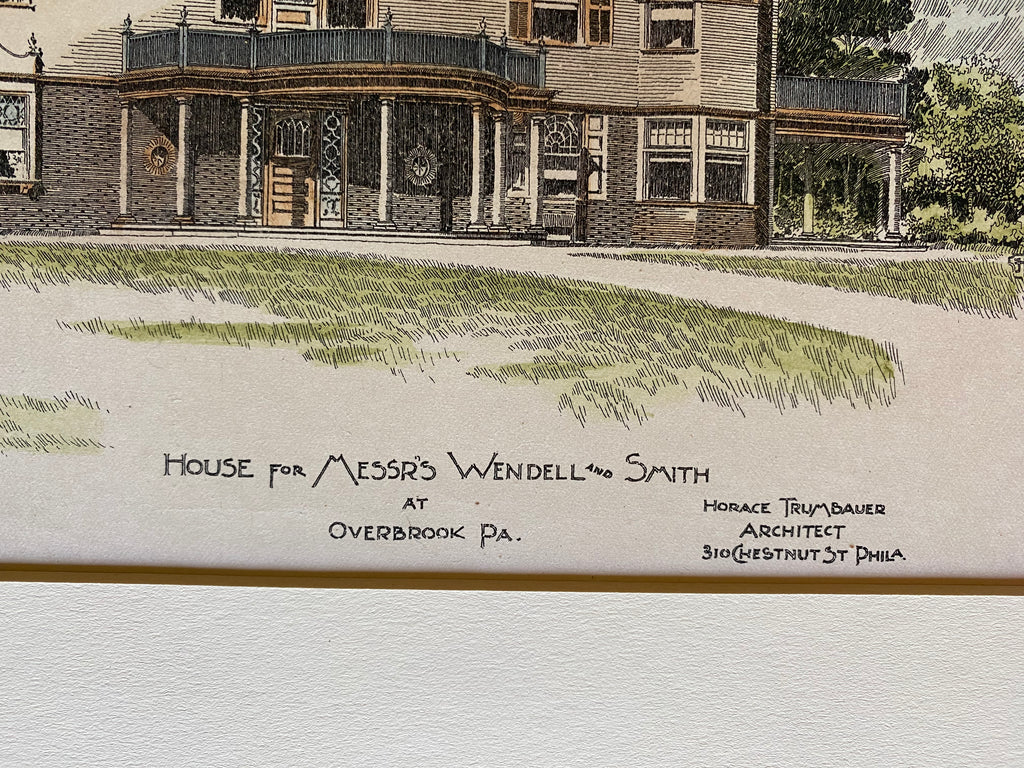 HOUSE FOR MESSR'S WENDELL AND SMITH
AT
OVERBROOK PA.
HORACE TRUMBAUER
ARCHITECT
310 CHESTNUT ST PHILA.